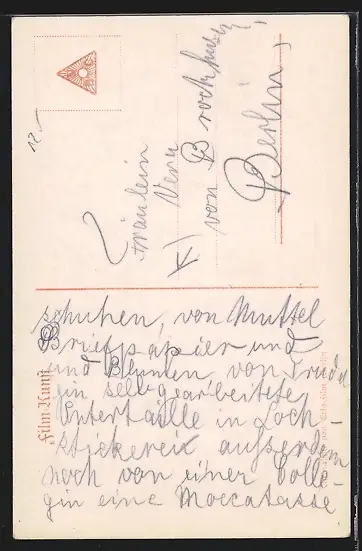 12.-
Fräulein
Vera
von Brockhusen,
Berlin,
Film-Kunst
schuhen, von Muttel
Briefpapier und
und Blumen, von Trude
ein selbgearbeitete
Untertaille in Loch-
stickerei außerdem
noch von einer Colle-
gin eine Moccatasse